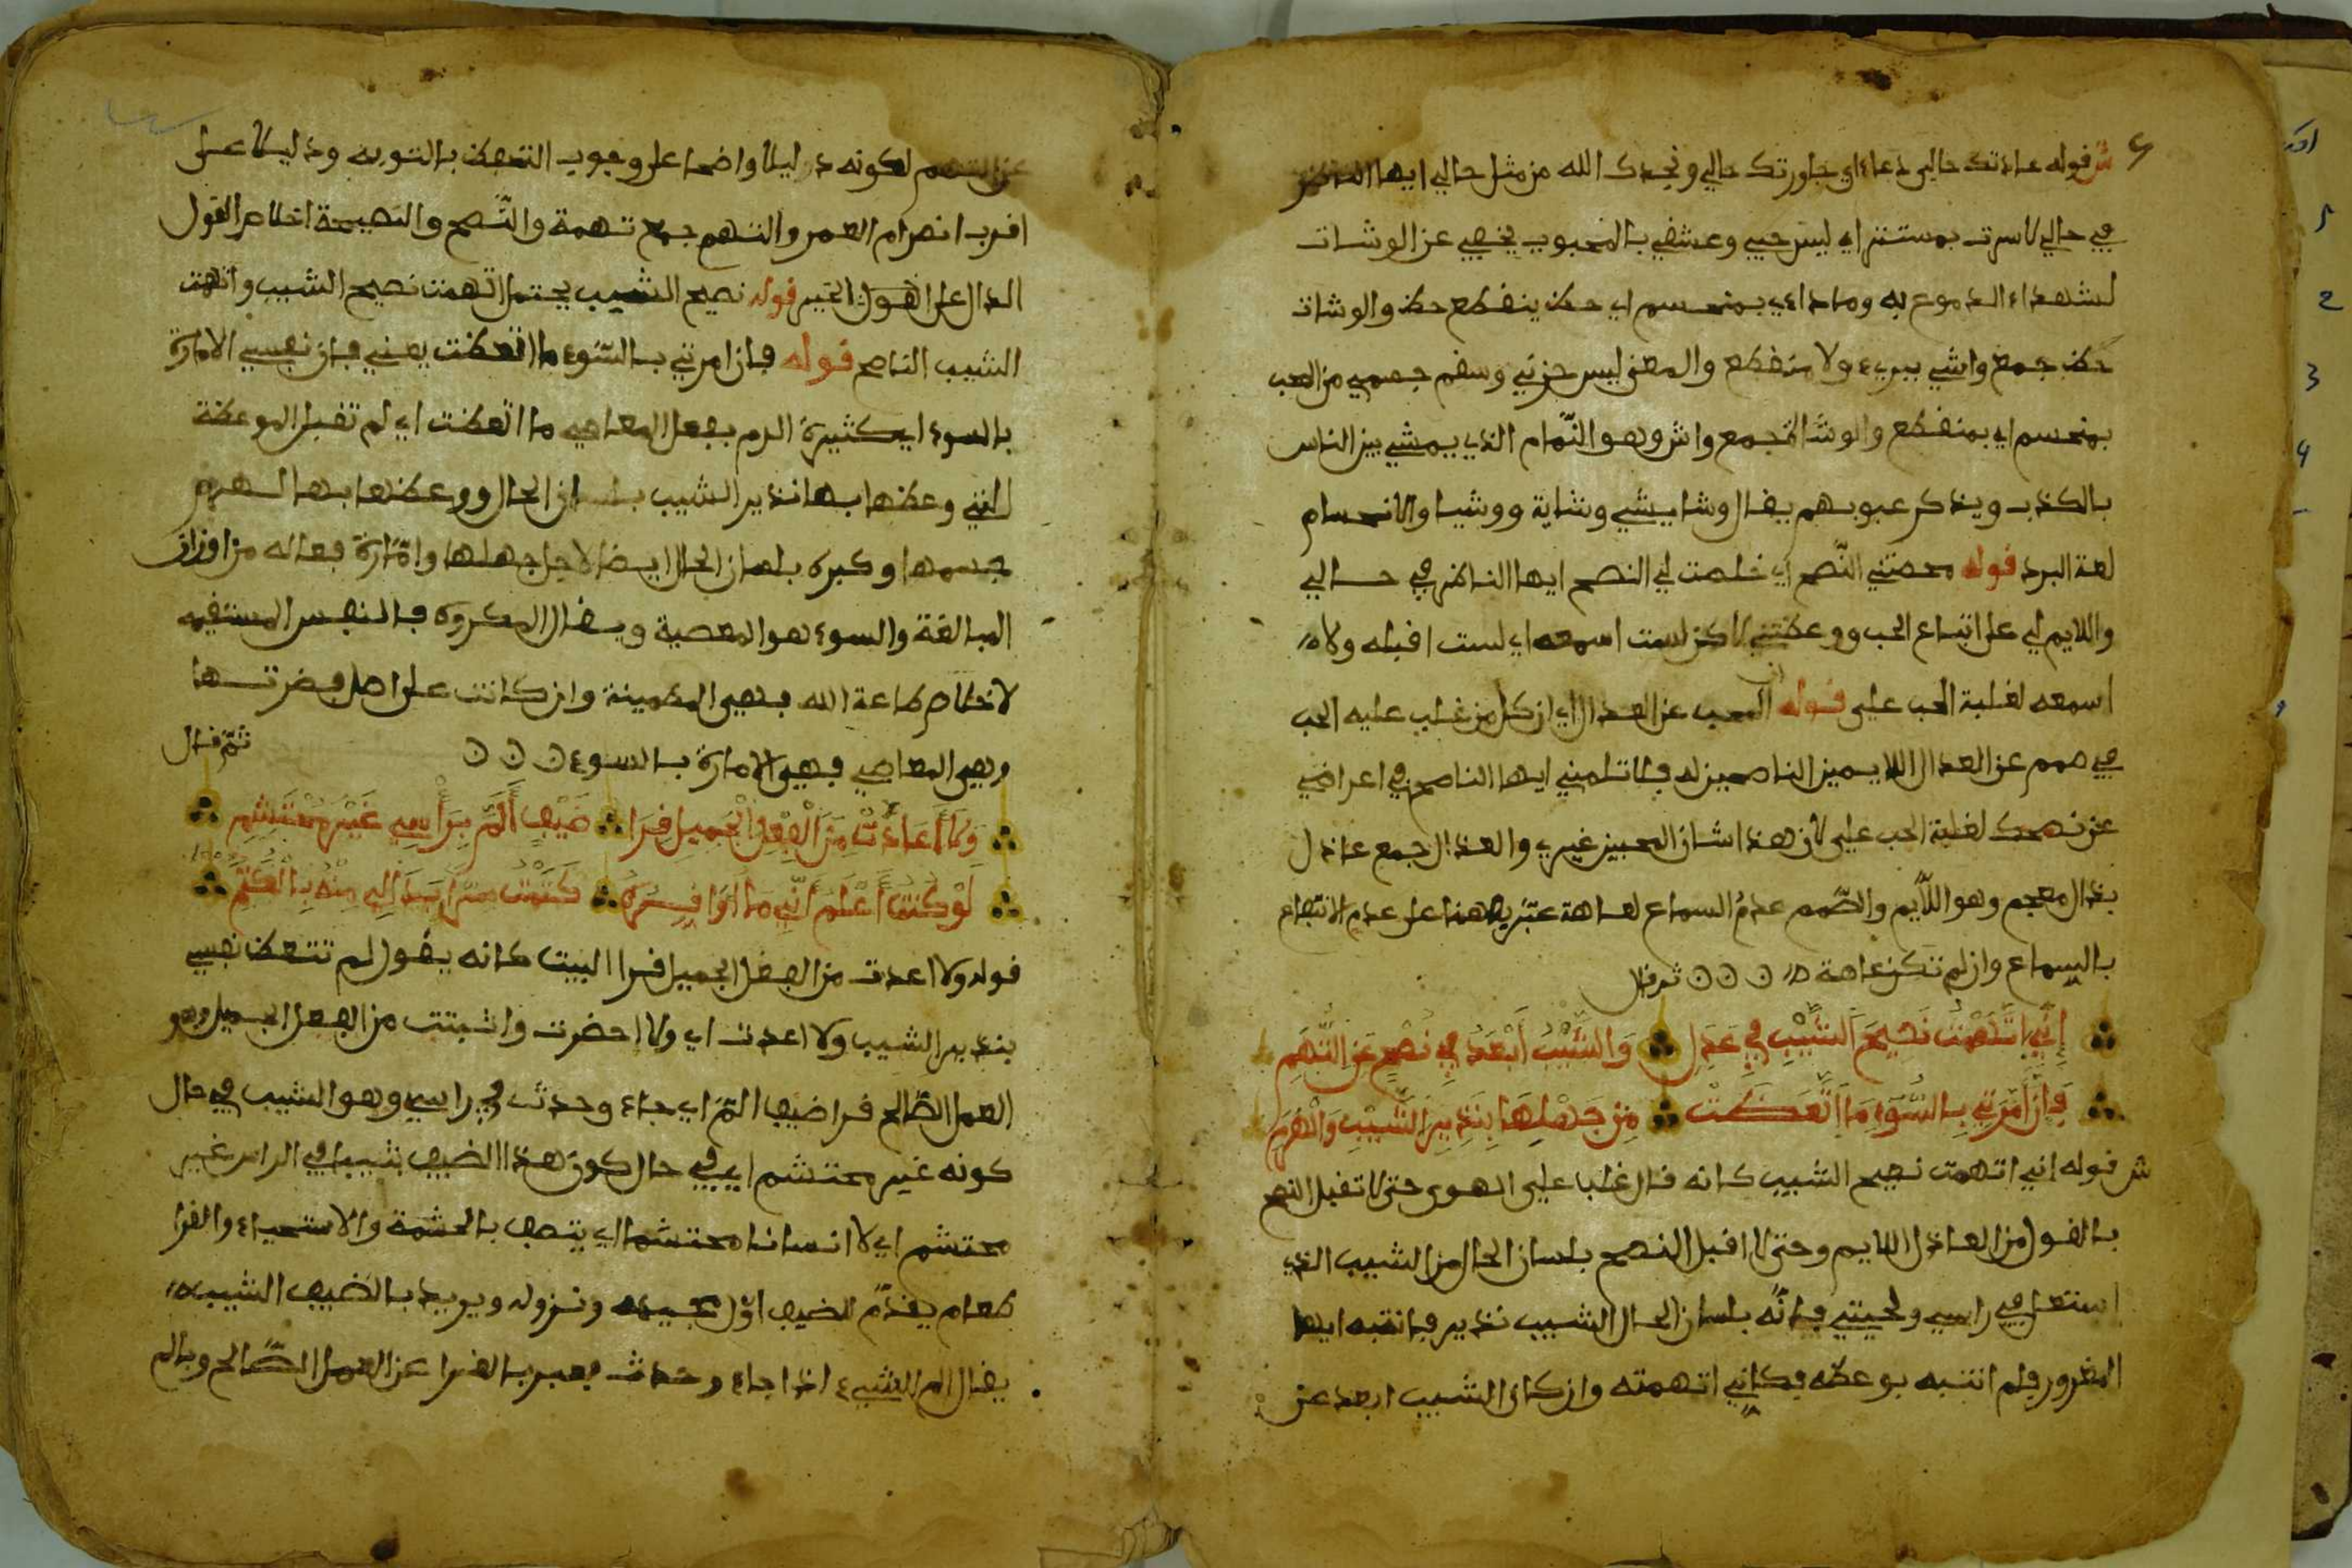 ش قوله عدتك حالي دعاء اي جاورتك حالي ونجدك الله من مثل حالي ايها الناظر
في حالي لا سري بمستتر اي ليس حبي وعشقي بالمحبوب يخفي عن الوشات
لشهداء الدموع به وما داءي بمنحسم اي حكى ينقطع حكى والوشات
جمع واشي ولا منقطع والمعنى ليس حزني وسقم جسمي من الحب
بمنحسم اي بمنقطع والوشاة جمع واش وهو النّمام الذي يمشي بين الناس
بالكذب ويذكر عيوبهم يقال وشا يشي وشاية ووشيا والانحسام
لغة البرء قوله محضتني النّصح اي خلصت لي النصح ايها الناظر في حالي
واللايم لي على اتباع الحب ووعظتني لاكن لست اسمعه اي لست اقبله ولا
اسمعه لغلبة الحب علي قوله ان المحب عن العذال اي ان كل من غلب عليه الحب
في صمم عن العذال اللايمين الناصحين له فلا تلمني ايها الناصح في اعراضي
عن نصحك لغلبة الحب علي لان هذا شان المحبين غيري والعذال جمع عاذل
بذال معجم وهو اللّايم والصّمم عدم السماع لعاهة عبّر به هنا على عدم الانتفاع
بالسماع وان لم تكن عاهة ثم قال
إِنِّي اتَّهَمْتُ نَصِيحَ الشَّيْبِ فِي عَذَلِ وَالشَّيْبُ أَبْعَدُ فِي نُصْحٍ عَنِ التُّهَمِ
فَإِنَّ أَمَّرَتِي بِالسُّوءِ مَا اتَّعَظَتْ مِنْ جَهْلِهَا بِنَذِيرِ الشَّيْبِ وَالْهَرَمِ
ش قوله إني اتهمت نصيح الشيب كانه قال غلب علي الهوى حتى لا تقبل النصح
بالقول من العاذل اللايم وحتى لا اقبل النصح بلسان الحال من الشيب الذي
اشتعل في راسي ولحيتي فانّه بلسان الحال الشيب نذير فانتبه ايها
المغرور فلم انتبه بوعظه فكاني اتهمته وان كان الشيب ابعد عن
عن التهم لكونه دليلا واضحا على وجوب التحفظ بالتوبه ودليلا على
اقرب انصرام العمر والتهم جمع تهمة والنّصح والنصيحة اخلاص القول
الدال على الخير قوله نصيح الشيب يحتمل اتهمت نصيح الشيب واتهمت
الشيب الناصح قوله فان امرتي بالسّوء ما اتعظت يعني فان نفسي الامارة
بالسوء اي كثيرة الامر بفعل المعاصي ما اتعظت اي لم تقبل الموعظة
التي وعظها بها نذير الشيب بلسان الحال ووعظها بها الهرم
جسمها وكبره بلسان الحال ايضا لاجل جهلها وامّارة فعاله من اوزان
المبالغة والسوء هو المعصية ويقال المكروه فالنفس المستقيمه
لاخلاص طاعة الله فهي المطمينة وان كانت على اصل فطرتها
وهي المعاصي فهي الامارة بالسوء ثمّ قال
وَلَا أَعَدَّتْ مِنَ الْفِعْلِ الْجَمِيلِ قِرَا ضَيْفٍ أَلَمَّ بِرَأْسِي غَيْرَ مُحْتَشِمِ
لَوْ كُنْتُ أَعْلَمُ أَنِّي مَا أُوَقِّرُهُ كَتَمْتُ سِرًّا بَدَا لِي مِنْهُ بِالْكَتَمِ
قوله ولا اعدت من الفعل الجميل قرا البيت كانه يقول لم تتعظ نفسي
بنذير الشيب ولا اعدت اي ولا احضرت واثبتت من الفعل الجميل وهو
العمل الصّالح قرا ضيف المّ اي جاء وحدث في راسي وهو الشيب في حال
كونه غير محتشم اي في حال كون هذا الضيف بشيب في الراس غير
محتشم اي لا انسانا محتشما اي يتصف بالحشمة والاستحياء والقرا
طعام يقدّم للضيف اوّل مجيئه ونزوله ويريد بالضيف الشيب
يقال الم الشيء اذا جاء وحدث فعبر بالقرا عن العمل الصّالح وبالم